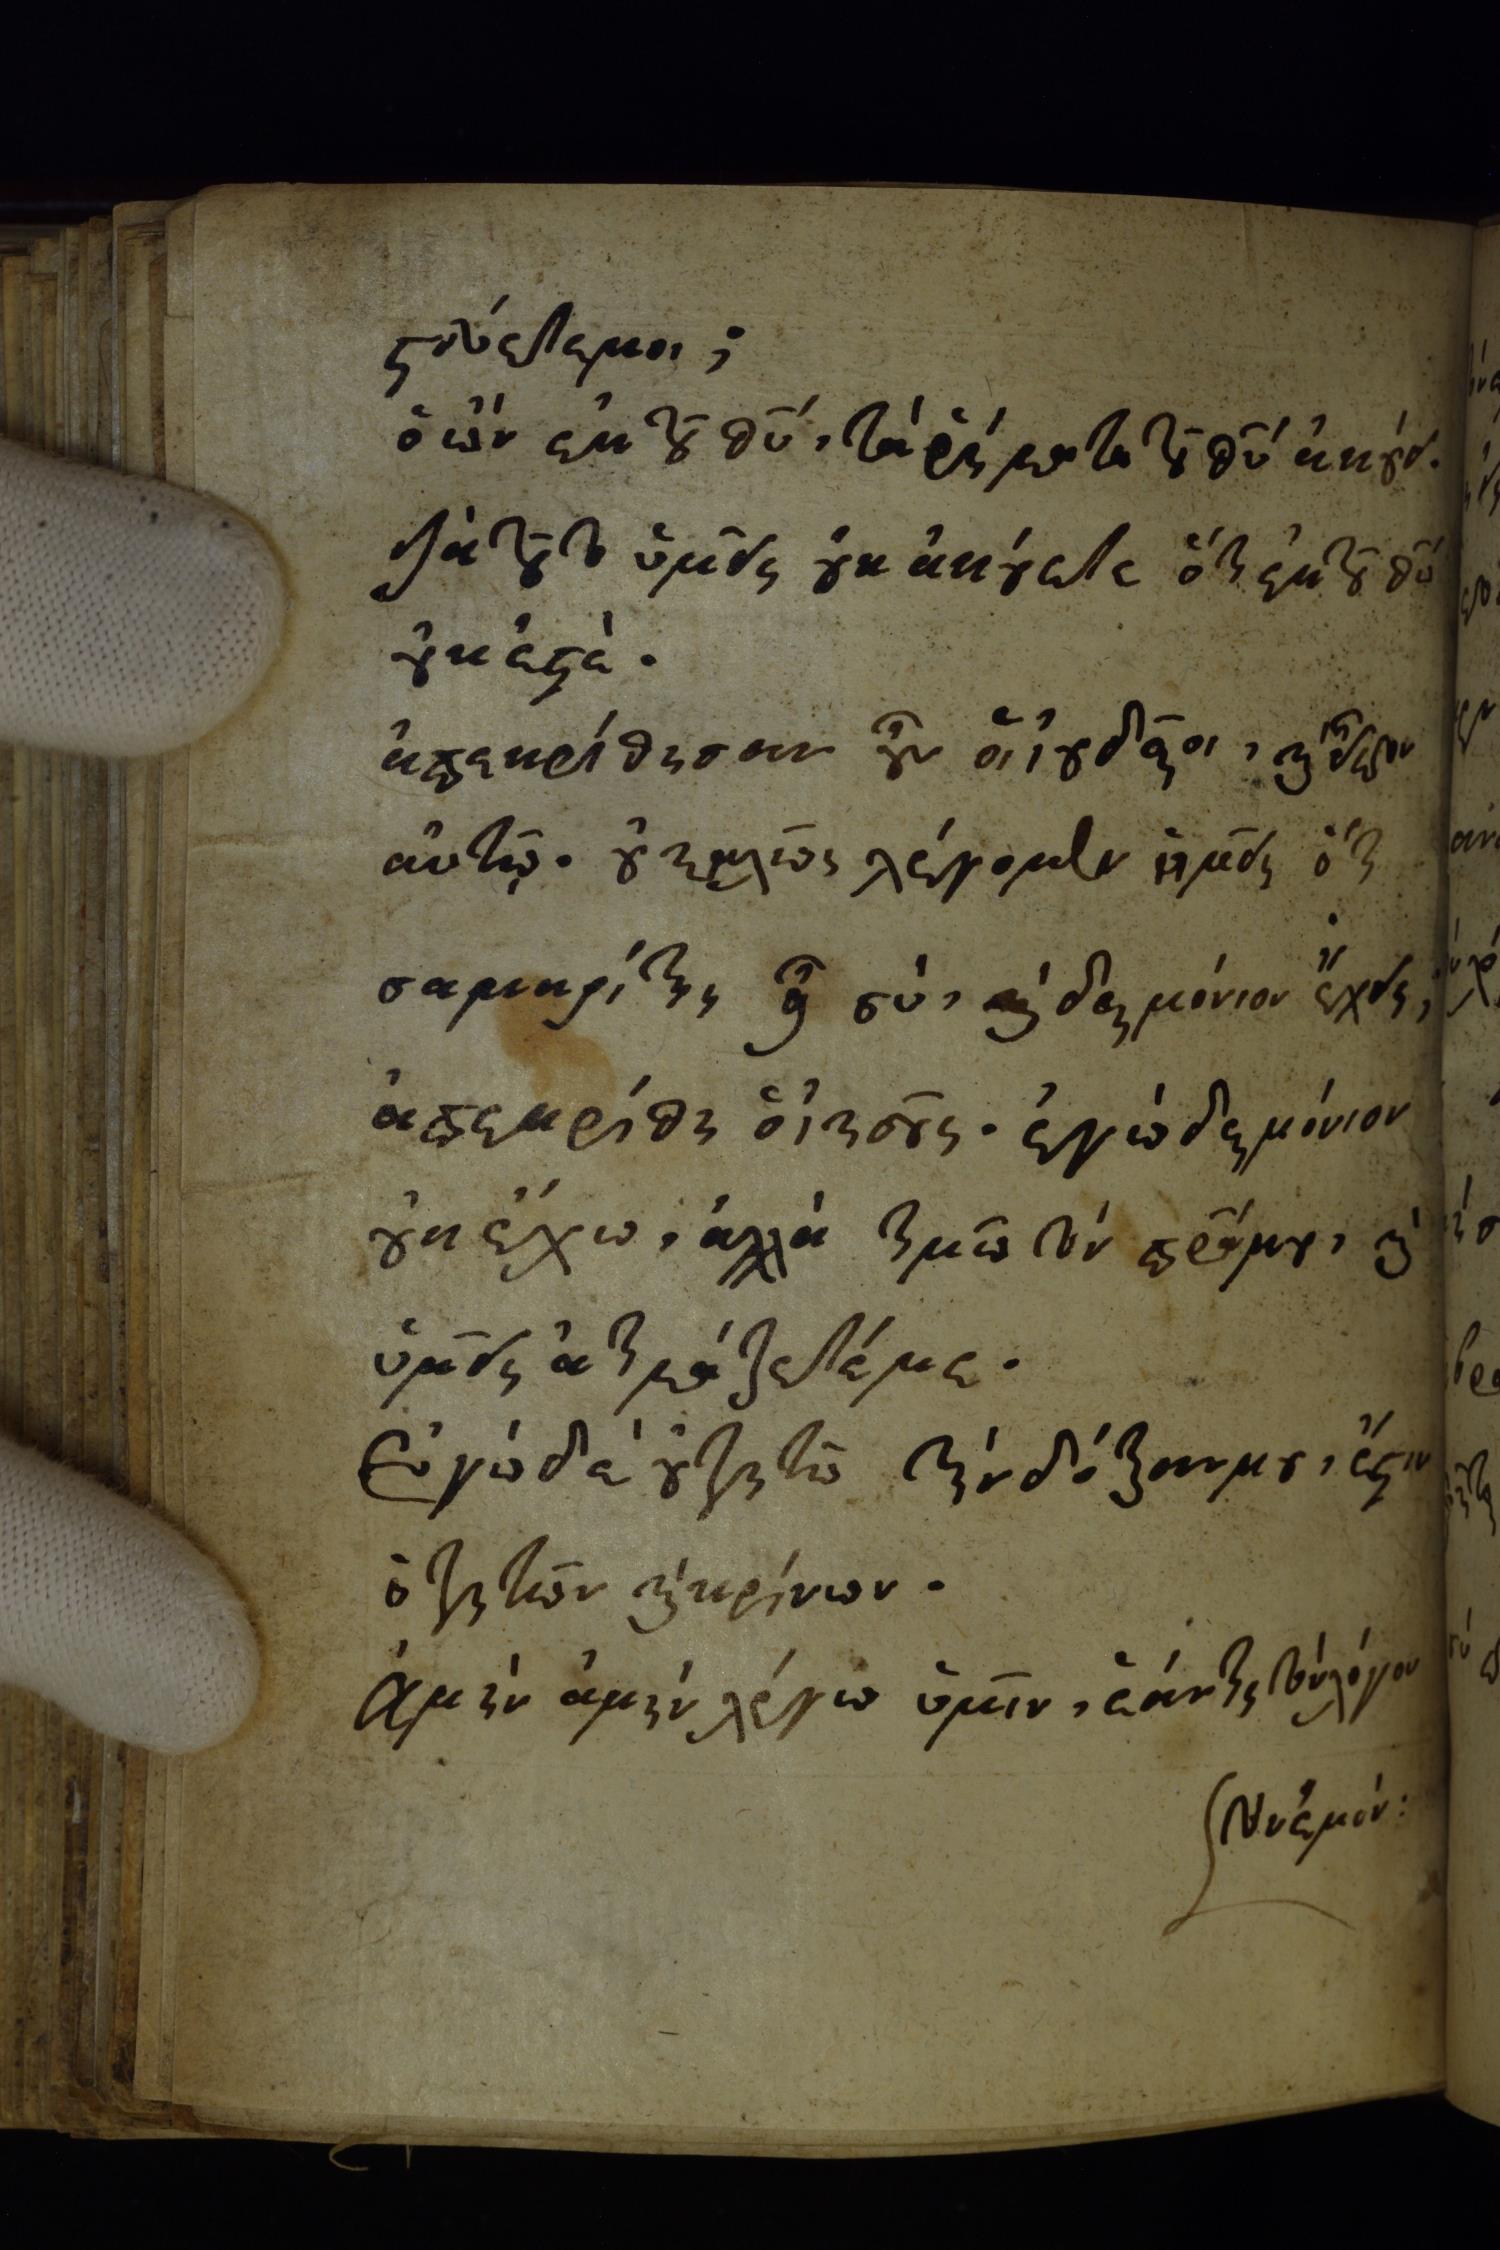 στεύετε μοι;
ὁ ὢν ἐκ τοῦ θῦ, τὰ ῥήματα τοῦ θῦ ἀκούει.
διὰ τοῦτο ὑμεῖς οὐκ ἀκούετε ὅτι ἐκ τοῦ θῦ
οὐκ ἐστέ.
ἀπεκρίθησαν οὖν οἱ ἰουδαῖοι, καὶ εἶπον
αὐτῷ. οὐ καλῶς λέγομεν ἡμεῖς ὅτι
σαμαρίτης εἶ σύ, καὶ δαιμόνιον ἔχεις;
ἀπεκρίθη ὁ ἰησοῦς. ἐγὼ δαιμόνιον
οὐκ ἔχω, ἀλλὰ τιμῶ τὸν πρά μου, καὶ
ὑμεῖς ἀτιμάζετέ με.
Ἐγὼ δὲ οὐ ζητῶ τὴν δόξαν μου, ἔστιν
ὁ ζητῶν καὶ κρίνων.
Ἀμὴν ἀμὴν λέγω ὑμῖν, ἐάν τις τὸν λόγον
τὸν ἐμόν: